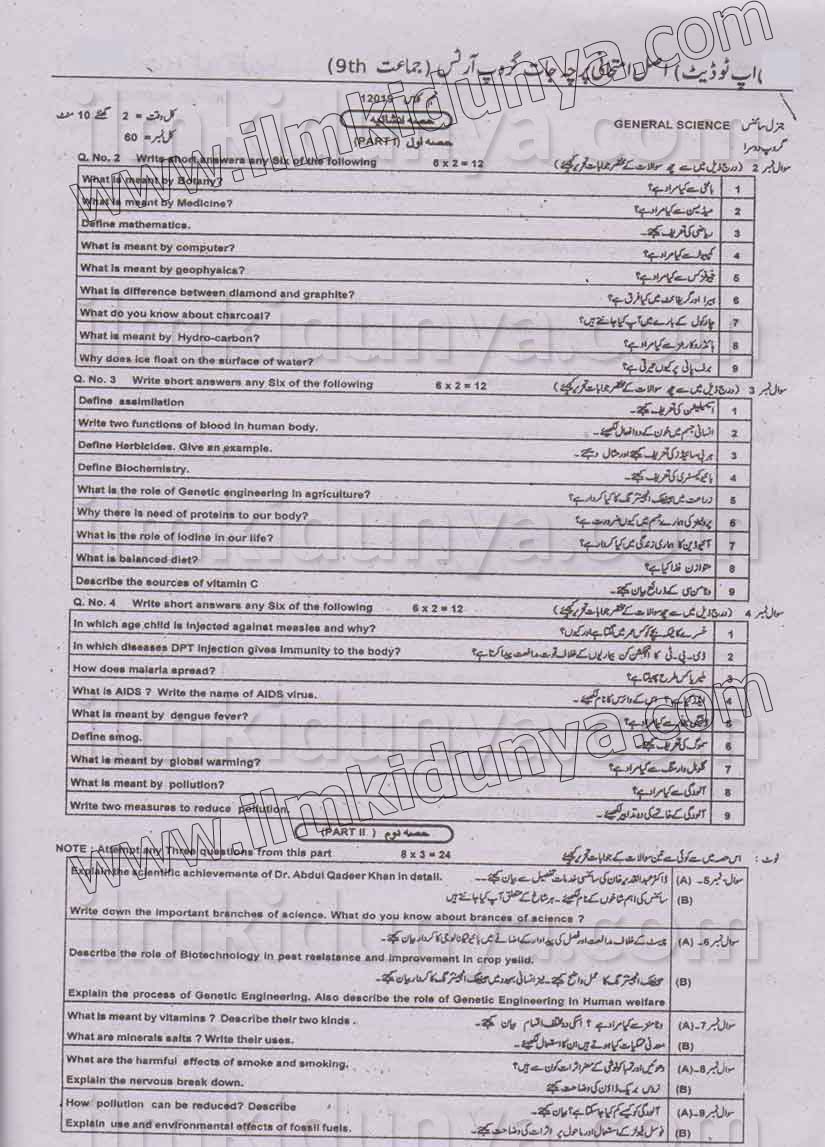 (اپ ٹو ڈیٹ) اصل امتحانی پرچہ جات گروپ آرٹس (جماعت 9th)
جنرل سائنس GENERAL SCIENCE 12019 کل وقت = 2 گھنٹے 10 منٹ
گروپ دوسرا حصہ انشائیہ کل نمبر = 60
حصہ اول (PART I)
Q. No. 2 Write short answers any Six of the following 6 x 2 = 12 سوال نمبر 2 (درج ذیل میں سے چھ سوالات کے مختصر جوابات تحریر کیجئے)
What is meant by Botany? باٹنی سے کیا مراد ہے؟ 1
What is meant by Medicine? میڈیسن سے کیا مراد ہے؟ 2
Define mathematics. ریاضی کی تعریف کیجئے۔ 3
What is meant by computer? کمپیوٹر سے کیا مراد ہے؟ 4
What is meant by geophyaica? جیوفزکس سے کیا مراد ہے؟ 5
What is difference between diamond and graphite? ہیرا اور گریفائیٹ میں کیا فرق ہے؟ 6
What do you know about charcoal? چارکول کے بارے میں آپ کیا جانتے ہیں؟ 7
What is meant by Hydro-carbon? ہائڈروکاربنز سے کیا مراد ہے؟ 8
Why does ice float on the surface of water? برف پانی پر کیوں تیرتی ہے؟ 9
Q. No. 3 Write short answers any Six of the following 6 x 2 = 12 سوال نمبر 3 (درج ذیل میں سے چھ سوالات کے مختصر جوابات تحریر کیجئے)
Define assimilation اسیمیلیشن کی تعریف کیجئے۔ 1
Write two functions of blood in human body. انسانی جسم میں خون کے دو افعال لکھیئے۔ 2
Define Herbicides. Give an example. ہربی سائیڈز کی تعریف کیجئے اور مثال دیجئے۔ 3
Define Biochemistry. بائیوکیمسٹری کی تعریف کیجئے۔ 4
What is the role of Genetic engineering in agriculture? زراعت میں جینیٹک انجینئرنگ کا کیا کردار ہے؟ 5
Why there is need of proteins to our body? پروٹینز کی ہمارے جسم میں کیوں ضرورت ہے؟ 6
What is the role of iodine in our life? آئیوڈین کا ہماری زندگی میں کیا کردار ہے؟ 7
What is balanced diet? متوازن غذا کیا ہے؟ 8
Describe the sources of vitamin C وٹامن سی کے ذرائع بیان کیجئے۔ 9
Q. No. 4 Write short answers any Six of the following 6 x 2 = 12 سوال نمبر 4 (درج ذیل میں سے چھ سوالات کے مختصر جوابات تحریر کیجئے)
In which age child is injected against measles and why? خسرے کا ٹیکہ بچے کو کس عمر میں لگتا ہے اور کیوں؟ 1
In which diseases DPT injection gives immunity to the body? ڈی۔پی۔ٹی کا انجکشن کن بیماریوں کے خلاف قوت مدافعت پیدا کرتا ہے؟ 2
How does malaria spread? ملیریا کس طرح پھیلتا ہے؟ 3
What is AIDS ? Write the name of AIDS virus. ایڈز کیا ہے؟ اس کے وائرس کا نام لکھیئے۔ 4
What is meant by dengue fever? ڈینگی بخار سے کیا مراد ہے؟ 5
Define smog. سموگ کی تعریف کیجئے۔ 6
What is meant by global warming? گلوبل وارمنگ سے کیا مراد ہے؟ 7
What is meant by pollution? آلودگی سے کیا مراد ہے؟ 8
Write two measures to reduce pollution. آلودگی کے خاتمے کی دو تدابیر لکھیئے۔ 9
حصہ دوم (PART II )
NOTE : Attempt any Three questions from this part 8 x 3 = 24 نوٹ : اس حصہ میں سے کوئی سے تین سوالات کے جوابات تحریر کیجئے
Explain the scientific achievements of Dr. Abdul Qadeer Khan in detail. ڈاکٹر عبدالقدیر خان کی سائنسی خدمات تفصیل سے بیان کیجئے۔ سوال نمبر 5۔ (A)
سائنس کی اہم شاخوں کے نام لکھیئے۔ ہر شاخ کے متعلق آپ کیا جانتے ہیں (B)
Write down the important branches of science. What do you know about brances of science ?
چیسٹ کے خلاف مدافعت اور فصل کی پیداوار کے اضافے میں بائیوٹیکنالوجی کا کردار بیان کیجئے۔ سوال نمبر 6۔ (A)
Describe the role of Biotechnology in pest resistance and improvement in crop yeild.
جینیٹک انجینئرنگ کا عمل واضح کیجئے۔ نیز انسانی بہبود میں جینیٹک انجینئرنگ کا کردار بیان کیجئے۔ (B)
Explain the process of Genetic Engineering. Also describe the role of Genetic Engineering in Human welfare
What is meant by vitamins ? Describe their two kinds . وٹامنز سے کیا مراد ہے ؟ انکی دو مختلف اقسام بیان کیجئے۔ سوال نمبر 7۔ (A)
What are minerals salts ? Write their uses. معدنی نمکیات کیا ہوتے ہیں ان کا استعمال لکھیئے۔ (B)
What are the harmful effects of smoke and smoking. دھوئیں اور تمباکو نوشی کے مضر اثرات کون سے ہیں؟ سوال نمبر 8۔ (A)
Explain the nervous break down. نروس بریک ڈاؤن کی وضاحت کیجئے۔ (B)
How pollution can be reduced? Describe آلودگی کو کیسے کم کیا جا سکتا ہے؟ بیان کیجئے۔ سوال نمبر 9۔ (A)
Explain use and environmental effects of fossil fuels. فوسل فیولز کے استعمال اور ماحول پر اثرات کی وضاحت کیجئے۔ (B)
www.ilmkidunya.com
www.ilmkidunya.com
ilmkidunya.com